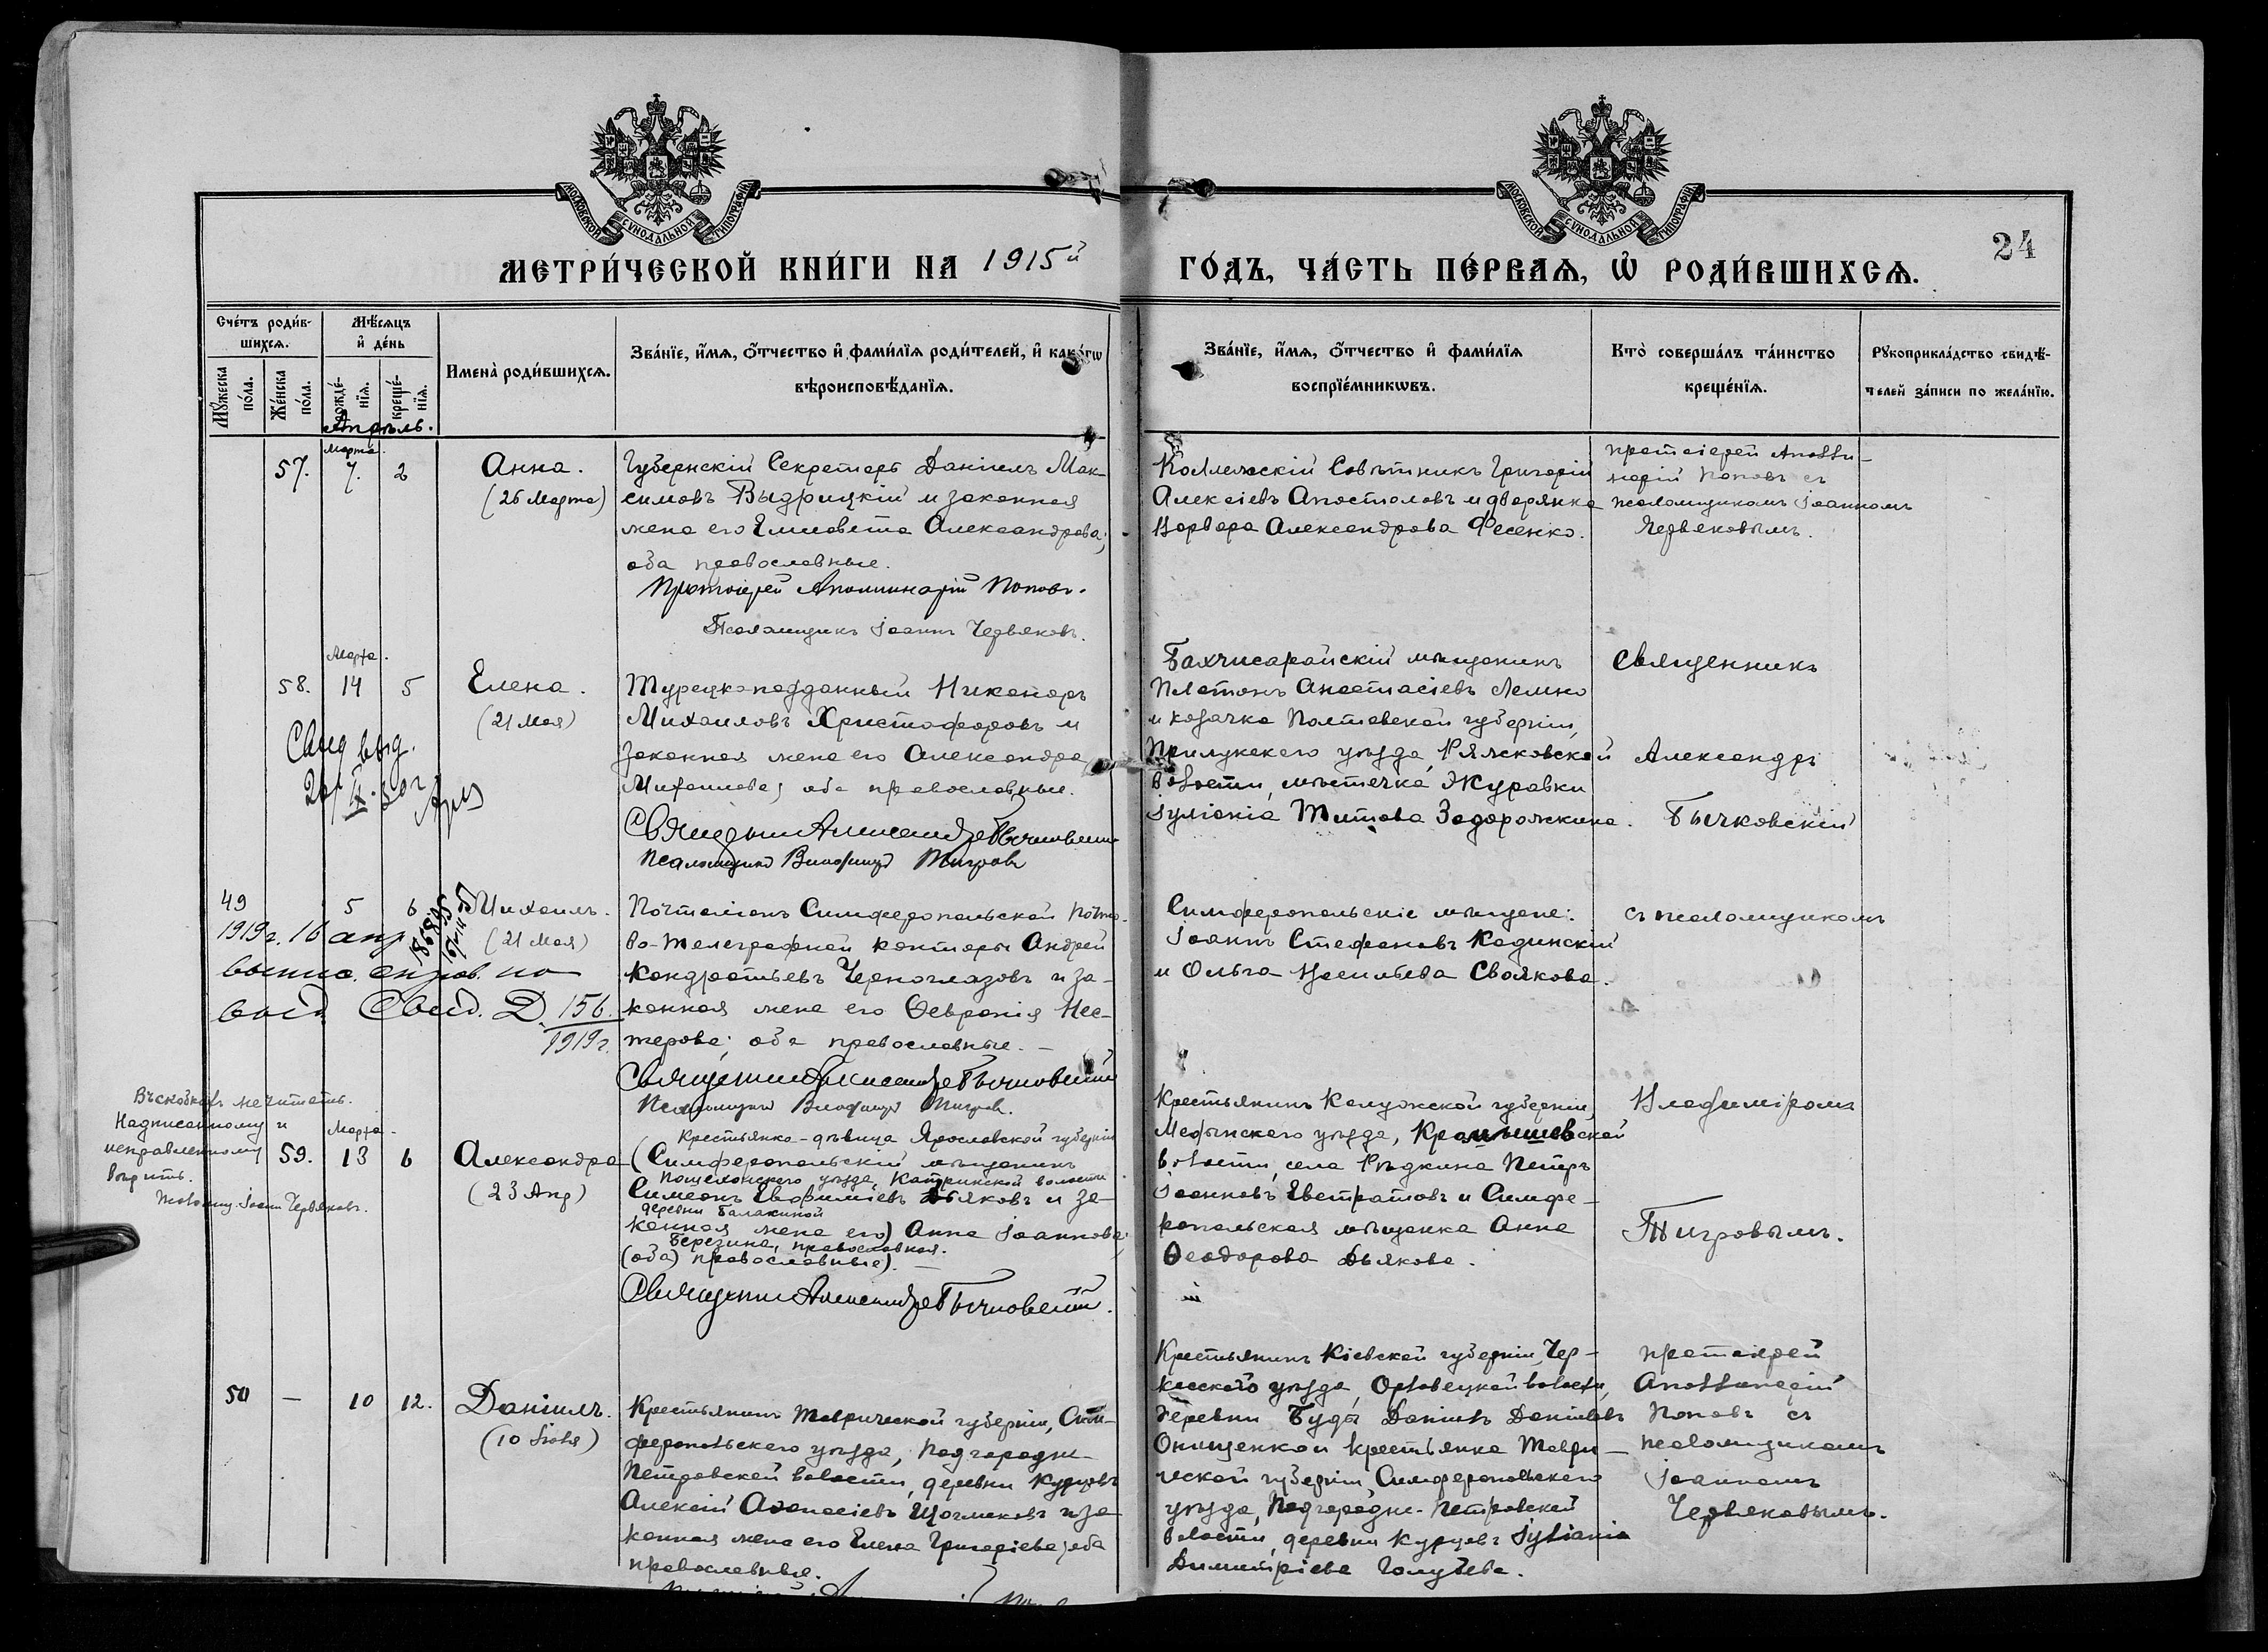 МОСКОВСКОЙ СѴНОДАЛЬНОЙ ТИПОГРАФІИ
МОСКОВСКОЙ СѴНОДАЛЬНОЙ ТИПОГРАФІИ
24
МЕТРИ́ЧЕСКОЙ КНИ́ГИ НА 1915й ГО́ДЪ, ЧА́СТЬ ПЕ́РВАѦ, Ѡ РОДИ́ВШИХСѦ.
Сче́тъ роди́в-
шихсѧ.
Мѣ́сѧцъ
и де́нь
Мꙋ́жеска
по́ла.
Же́нска
по́ла.
рожде́-
нїѧ.
креще́-
нїѧ.
Имена̀ роди́вшихсѧ.
Зва́нїе, и́мѧ, о́тчество и фами́лїѧ роди́телей, и како́гѡ
вѣроисповѣ́данїѧ.
Зва́нїе, и́мѧ, о́тчество и фами́лїѧ
воспрїе́мникѡвъ.
Кто̀ соверша́лъ та́инство
креще́нїѧ.
Рꙋкоприкла́дство свидѣ́-
телей за́писи по жела́нїю.
Апрѣль.
Марта.
57. 7. 2
Анна.
(26 Марта)
Губернскій Секретарь Даніилъ Мак-
симовъ Выдрицкій и законная
жена его Елисавета Александрова;
оба православные.
Протоіерей Аполлинарій Поповъ.
Псаломщикъ Іоаннъ Червяковъ.
Коллежскій Совѣтникъ Григорій
Алексіевъ Апостоловъ и дворянка
Варвара Александрова Фесенко.
протоіерей Аполли-
нарій Поповъ съ
псаломщикомъ Іоанномъ
Червяковымъ.
Марта.
58. 14 5
Елена.
(21 Мая)
Свид. выд.
Турецкоподданный Никаноръ
Михаиловъ Христофоровъ и
законная жена его Александра
Михаилова; оба православные.
Священникъ Александръ Бычковскій
Псаломщикъ Владиміръ Тигровъ
Бахчисарайскій мѣщанинъ
Платонъ Анастасіевъ Лемко
и козачка Полтавской губерніи,
Прилукскаго уѣзда, Рясковской
волости, мѣстечка Журавки
Іуліанія Титова Задорожкина.
Священникъ
Александръ
Бычковскій
49 5 6
Михаилъ.
(21 Мая)
1919г. 16 апр
выд. Свид. № 156.
1919г.
Почталіонъ Симферопольской почто-
во-телеграфной конторы Андрей
Кондратьевъ Черноглазовъ и за-
конная жена его Ѳевронія Нес-
терова; оба православные. —
Священникъ Александръ Бычковскій
Псаломщикъ Владиміръ Тигровъ.
Симферопольскіе мѣщане:
Іоаннъ Стефановъ Кадинскій
и Ольга Васильева Своякова.
съ псаломщикомъ
Въ скобкахъ не читать.
Надписанному и
исправленному
вѣрить.
Псаломщ. Іоаннъ Червяковъ.
Марта
59. 13 6
Александра
(23 Апр)
Крестьянка-дѣвица Ярославской губерніи
(Симферопольскій мѣщанинъ
Пошехонскаго уѣзда, Катринской волости
Симеонъ Евфиміевъ Дьяковъ и за-
деревни Балакиной
конная жена его) Анна Іоаннова
Березина, православная.
(оба) православные). —
Священникъ Александръ Бычковскій.
Крестьянинъ Калужской губерніи,
Медынскаго уѣзда, Кромышевской
волости, села Рѣдкина Петръ
Іоанновъ Евстратовъ и Симфе-
ропольская мѣщанка Анна
Ѳеодорова Дьякова.
Владиміромъ
Тигровымъ.
50 — 10 12.
Даніилъ.
(10 Іюля)
Крестьянинъ Таврической губерніи, Сим-
феропольскаго уѣзда, Подгородне-
Петровской волости, деревни Курцовъ
Алексій Аѳанасіевъ Щогликовъ и за-
конная жена его Елена Григоріева; оба
православные.
Крестьянинъ Кіевской губерніи, Чер-
касскаго уѣзда, Орловецкой волости,
деревни Буды Даніилъ Даніиловъ
Онищенко и крестьянка Таври-
ческой губерніи, Симферопольскаго
уѣзда, Подгородне-Петровской
волости, деревни Курцовъ Іуліанія
Димитріева Голубева.
протоіерей
Аполлинарій
Поповъ съ
псаломщикомъ
Іоанномъ
Червяковымъ.